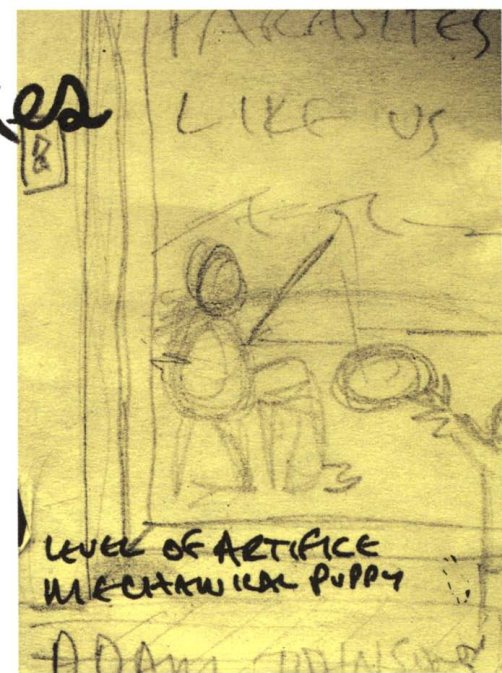 PARASITES
LIKE US
LEVEL OF ARTIFICE
MECHANICAL PUPPY
ADAM JOHNSON